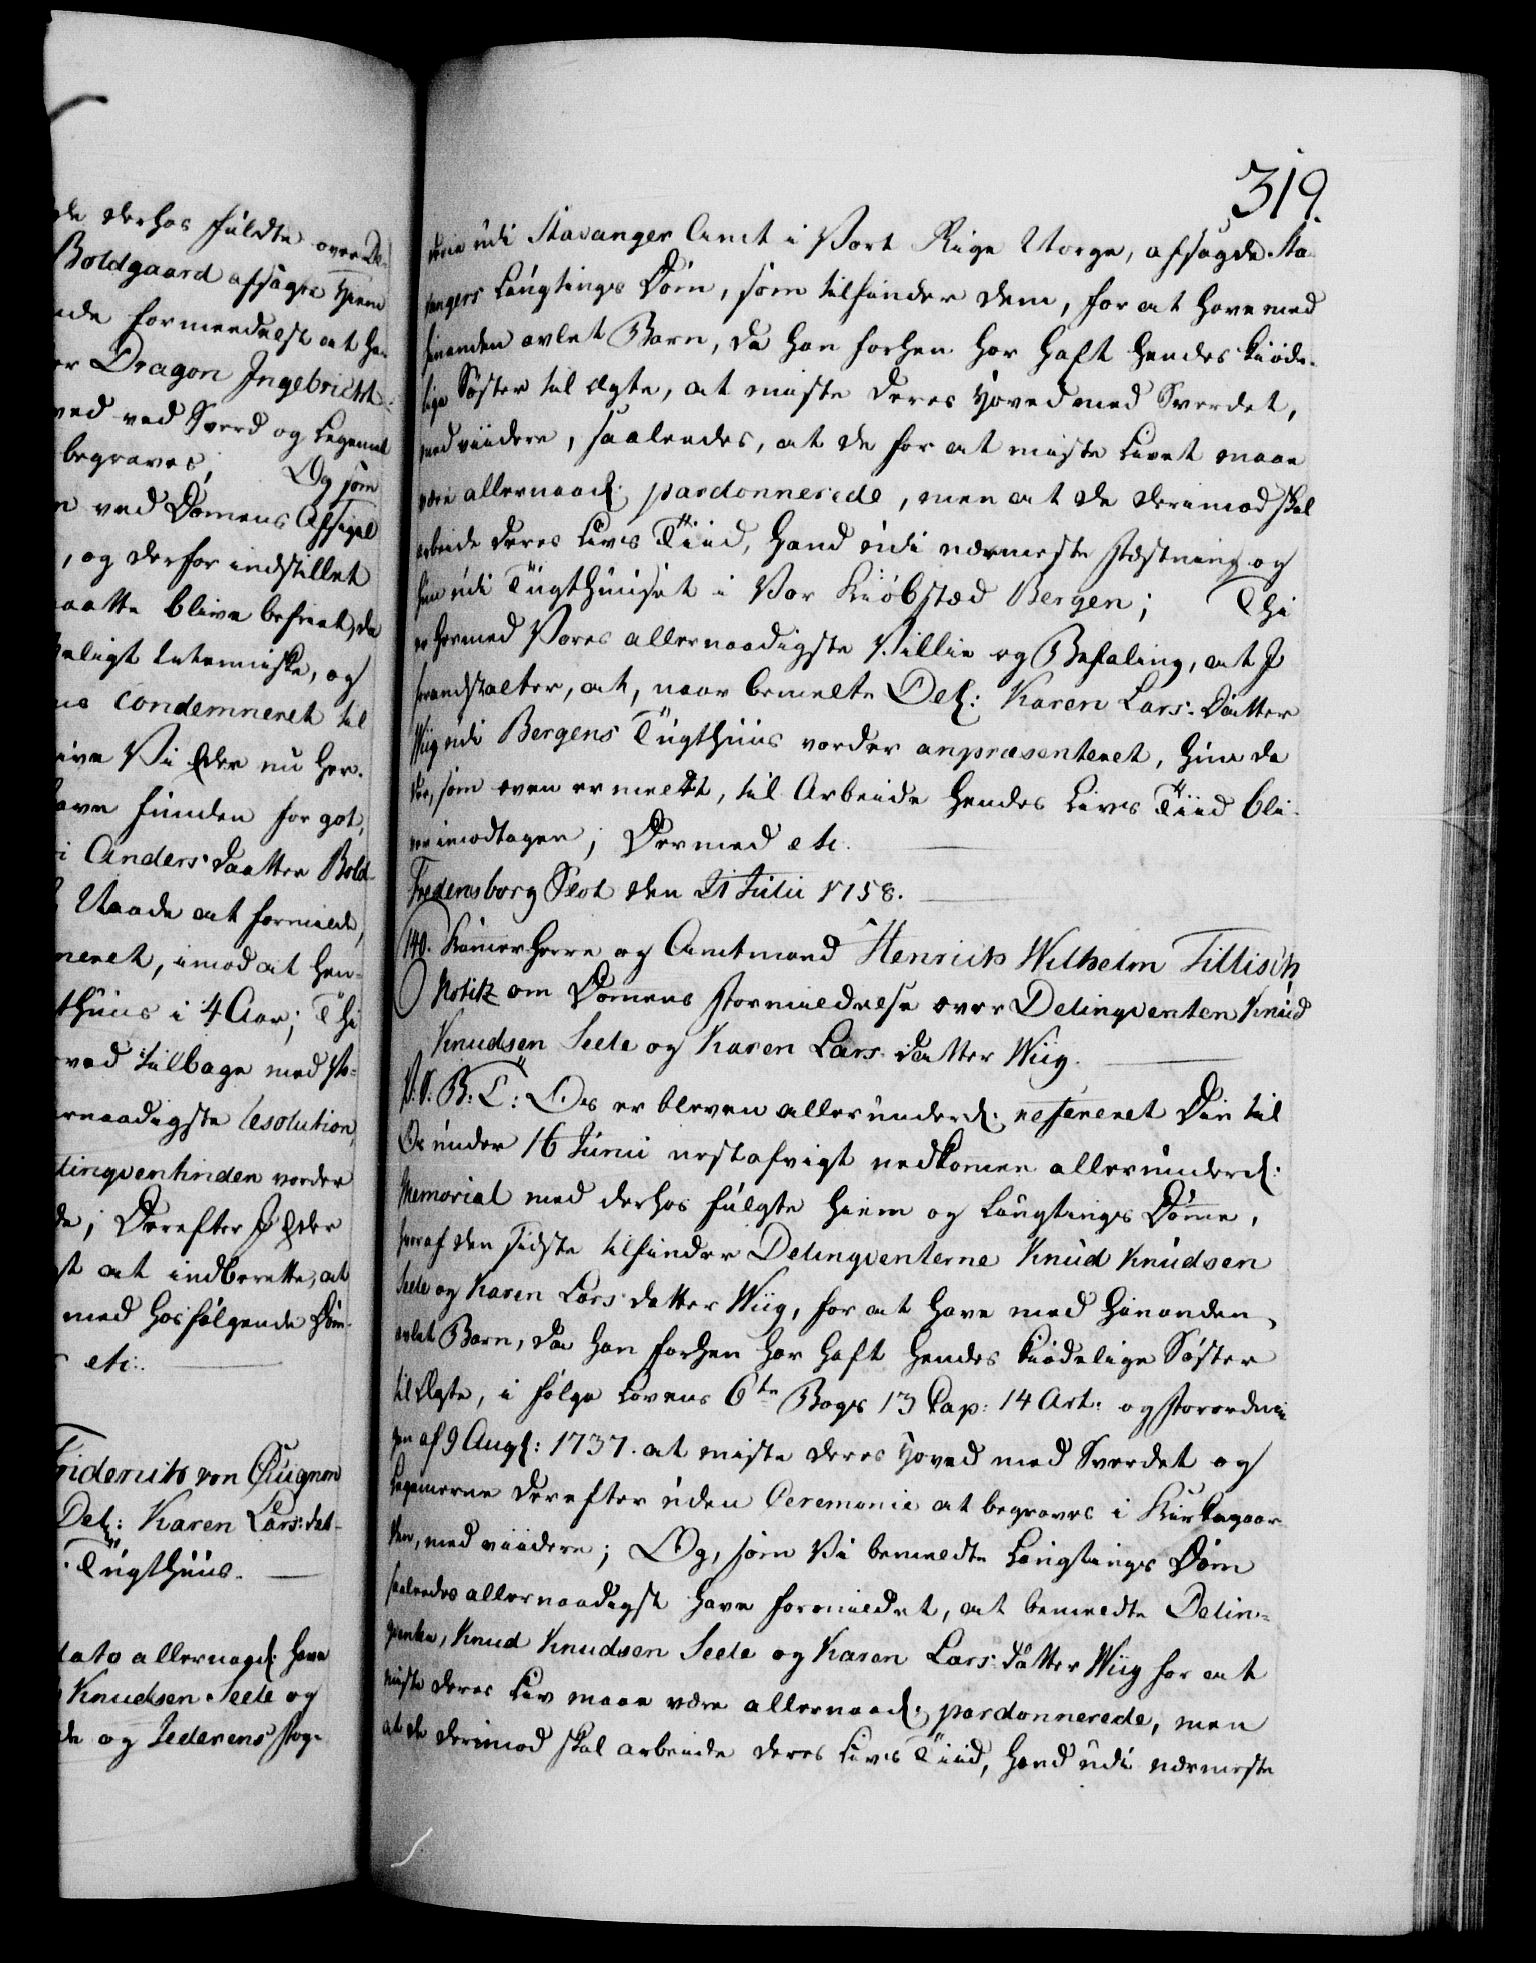 de derhos fuldte over De-
Boldgaard afsagte Hiem
nde formeedelst at ha-
er Dragon Ingebricht
ved ved Sverd og Legemet
begraves; Og som
n ved Dommens Afsigel
, og derfor indstillet
aatte blive befriet, da
eligt Menniske, og
ns condemneret til
give Vi Eder nu her-
have funden for got,
i Anders Daatter Bold-
Naade at formilde,
neret, imod at hen-
thuus i 4 Aar; Thi
ved tilbage med vo-
ernaadigste Resolution,
linqventinden vorder
de; Derefter I Eder
st at indberette, at
med hosfølgende Dom-
etc:
Friderich von Cicignon
Del: Karen Lars dat-
Tugthuus.
dato allernaad: have
Knudsen Seele og
de og Jederens Fog-
319.
derie udi Stavanger Amt i Vort Rige Norge, afsagde Sta-
vangers Laugtings Dom, som tilfinder dem, for at have med
hinanden avlet Barn, da han forhen har haft hendes kiøde-
lige Søster til Ægte, at miste deres Hoved med Sverdet,
med viidere, saaledes, at de for at miste Livet maae
være allernaad: pardonnerede, men at de derimod skal
arbeide deres Livs Tiid, hand udi nærmeste Fæstning og
hun udi Tugthuuset i Vor Kiøbstæd Bergen; Thi
er hermed Vores allernaadigste Villie og Befaling, at I
foranstalter, at, naar bemelte Del: Karen Lars-Datter
Wiig udi Bergens Tugthuus vorder anpræsenteret, hun da
der, som oven ermeldt, til Arbeide hendes Livs Tiid bli-
ver imodtagen; Dermed etc.
Fredensborg Slot den 21 Julii 1758.
140. Kammerherre og Amtmand Henrich Wilhelm Tillisch,
Notitz om Dommens Formildelse over Delinqventen Knud
Knudsen Seele og Karen Lars datter Wiig.
V. V. B: T: Os er bleven allerunderd: refereret Din til
Os under 16 Junii nestafvigt nedkomne allerunderd:
Memorial med derhos fulgte Hiem og Laugtings Domme,
hvoraf den sidste tilfinder Delinqventerne Knud Knudsen
Seele og Karen Lars datter Wiig, for at have med hinanden
avlet Barn, da han forhen har haft hendes kiødelige Søster
til Ægte, i følge Lovens 6te Bogs 13 Cap: 14 Art: og Forordnin
gen af 9 Aug: 1737. at miste deres Hoved med Sverdet og
Legemerne derefter uden Ceremonie at begraves i Kirkegaar-
den, med viidere; Og, som Vi bemeldte Laugtings Dom
saaledes allernaadigst have formildet, at bemeldte Delin-
qventer, Knud Knudsen Seele og Karen Lars datter Wiig for at
miste deres Liv maae være allernaad: pardonnerede, men
at de derimod skal arbeide deres Livs Tiid, hand udi nærmeste